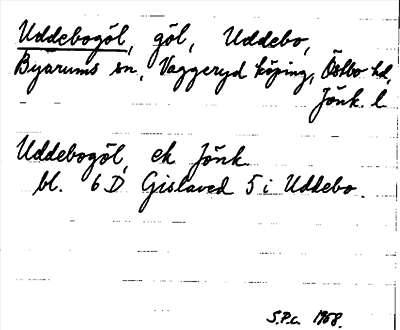 Uddebogöl, göl, Uddebo,
Byarums sn, Vaggeryd köping, Östbo hd,
Jönk. l.
Uddebogöl, ek Jönk
bl. 6D Gislaved 5 i Uddebo.
S.P.C. 1968.